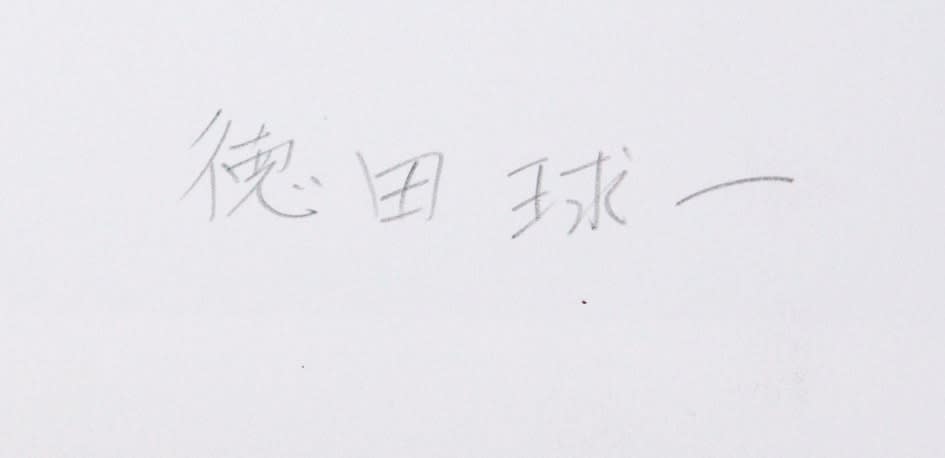 徳田球一